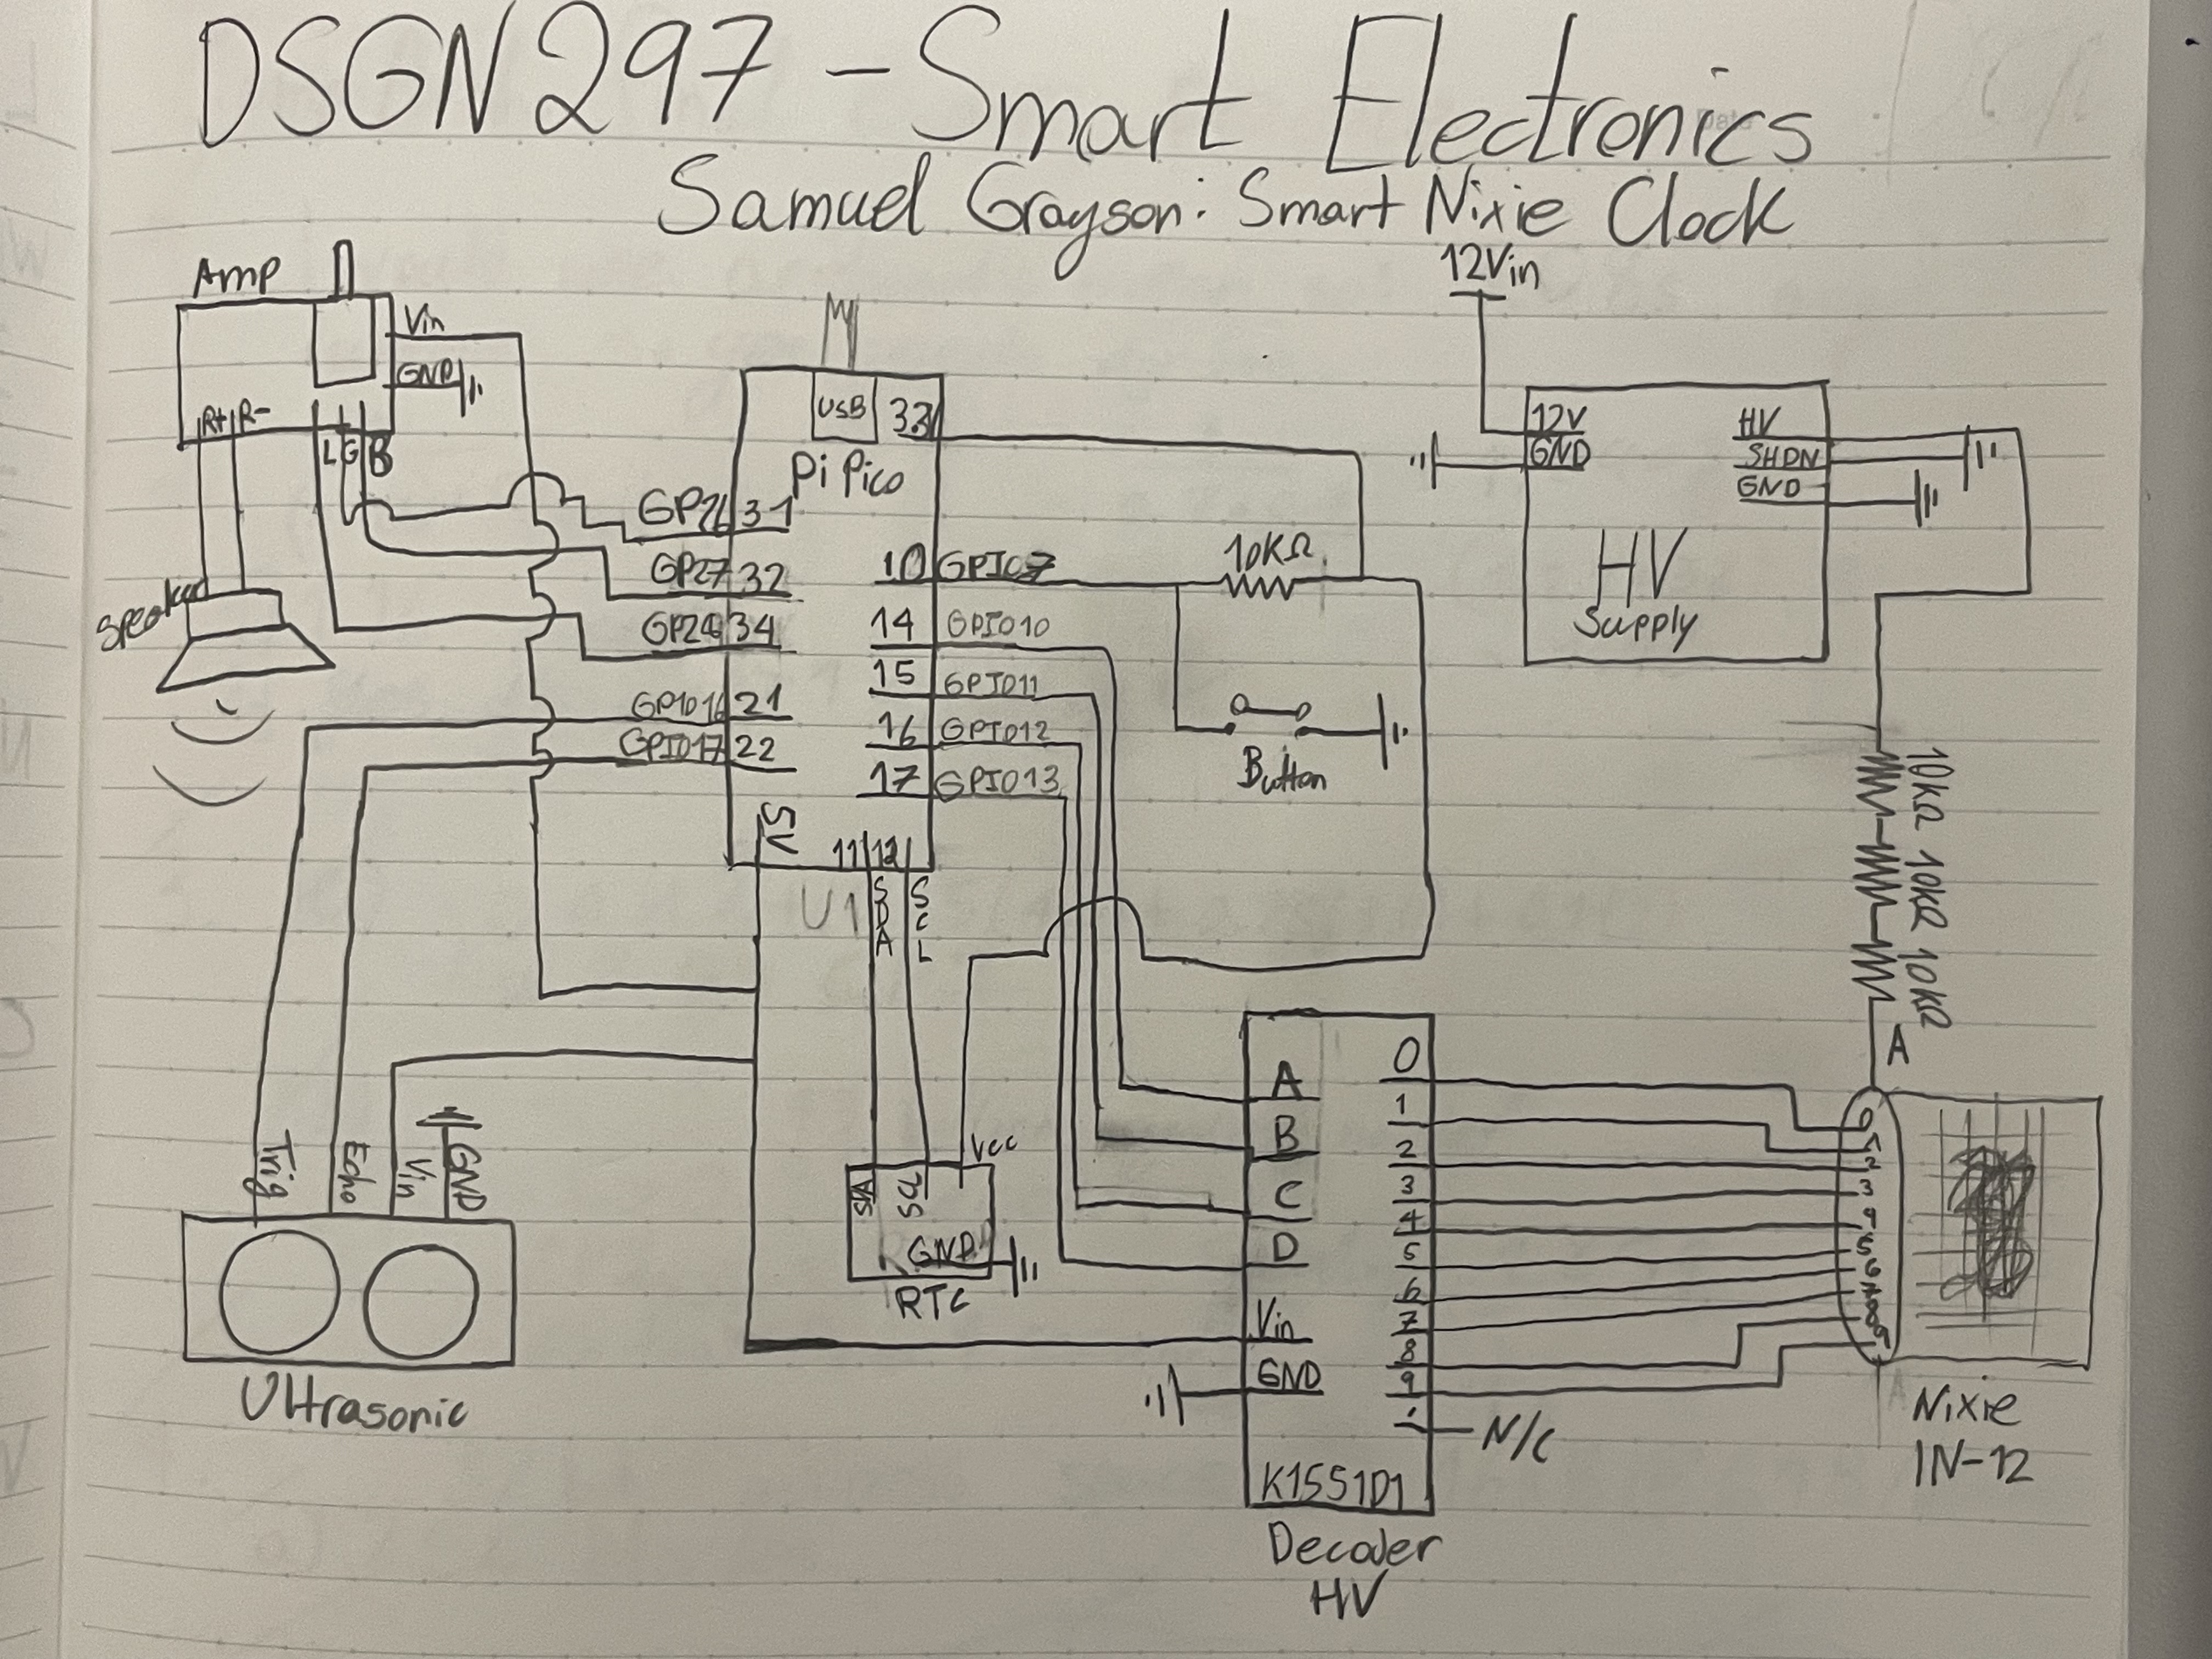 DSGN 297 - Smart Electronics
Samuel Grayson: Smart Nixie Clock
12Vin
Amp
Vin
GND
R+ R-
L G B
Speaker
USB
3.3V
Pi Pico
GP26 31
GP27 32
34
GPIO16 21
GPIO17 22
10 GPIO7
14 GPIO10
15 GPIO11
16 GPIO12
17 GPIO13
5V
11 12
U1
SDA
SCL
10KΩ
Button
12V
GND
HV
SHDN
GND
HV
Supply
10KΩ 10KΩ 10KΩ
A
Trig
Echo
Vin
GND
Ultrasonic
Vcc
SCL
GND
RTC
A
B
C
D
Vin
GND
0
1
2
3
4
5
6
7
8
9
N/C
K155ID1
Decoder
HV
0
1
2
3
4
5
6
7
8
9
A
Nixie
IN-12
Date